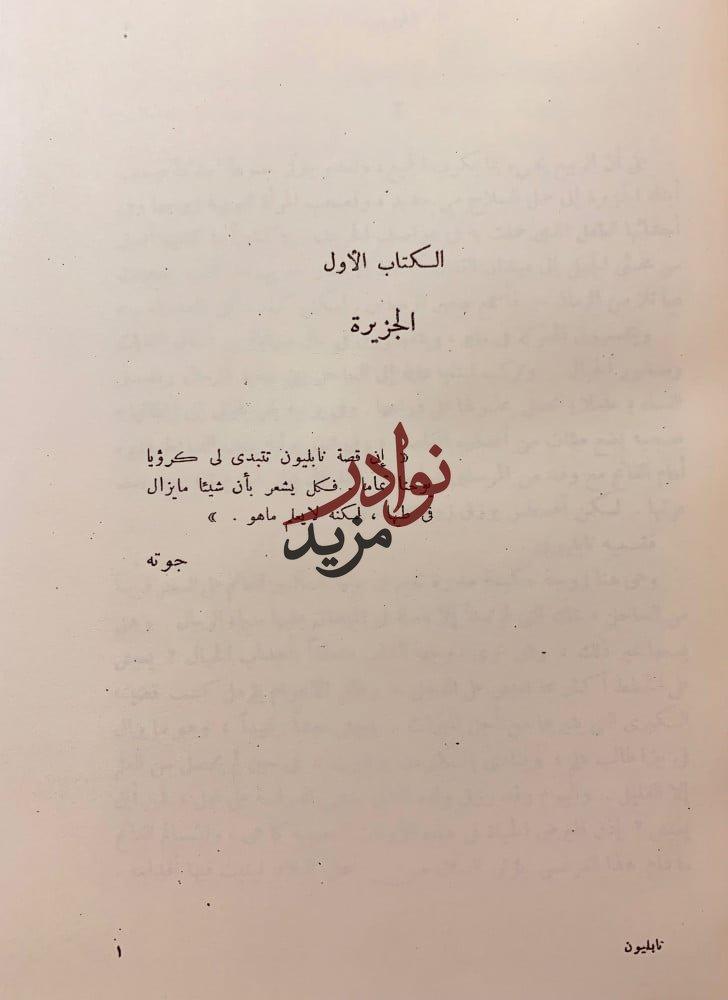 الكتاب الأول
الجزيرة
« إن قصة نابليون تتبدى لى كرؤيا
يوحنا تماما . فكل يشعر بأن شيئا مايزال
فى بطنها ، لكنه لايعلم ماهو . »
جوته
نوادر
مزيد
نابليون
١